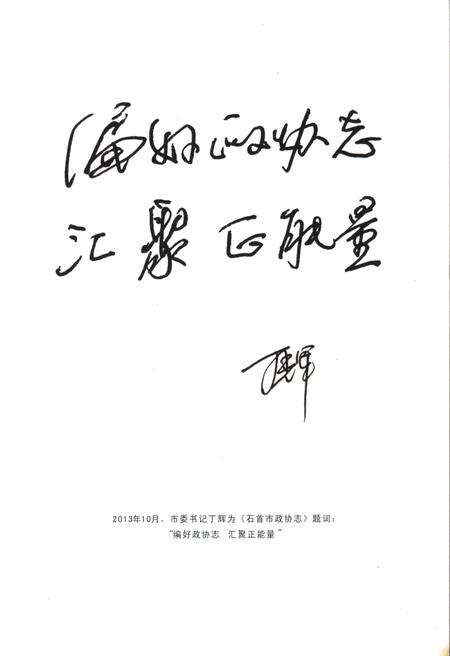 编好政协志
汇聚正能量
丁辉
2013年10月，市委书记丁辉为《石首市政协志》题词：
“编好政协志　汇聚正能量”